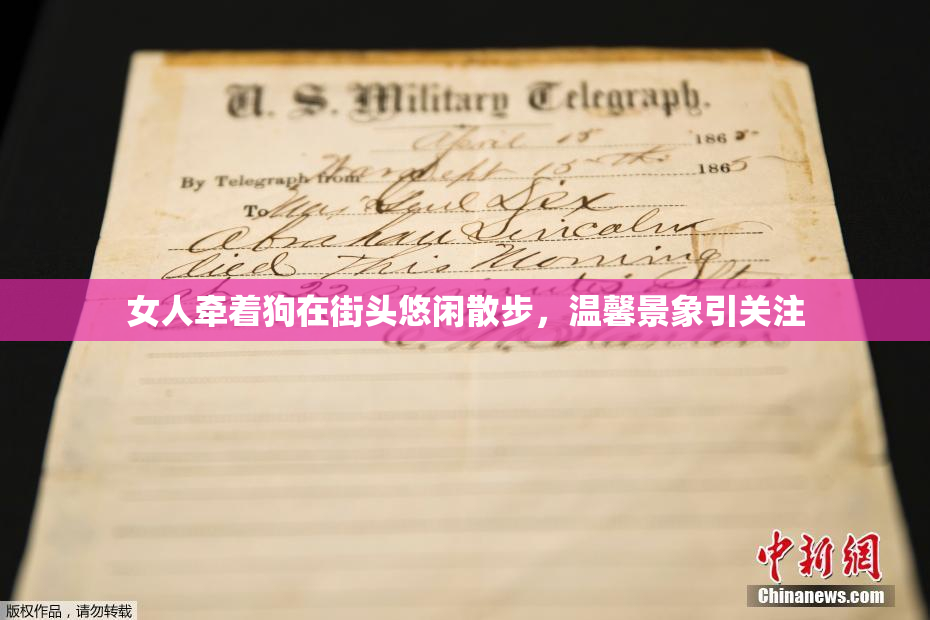 U. S. Military Telegraph.
April 15 1865
By Telegraph from War Dept 15th 1865
To Maj Genl Dix
Abraham Lincoln
died This Morning
at 22 minutes after
女人牵着狗在街头悠闲散步，温馨景象引关注
中新网
Chinanews.com
版权作品，请勿转载